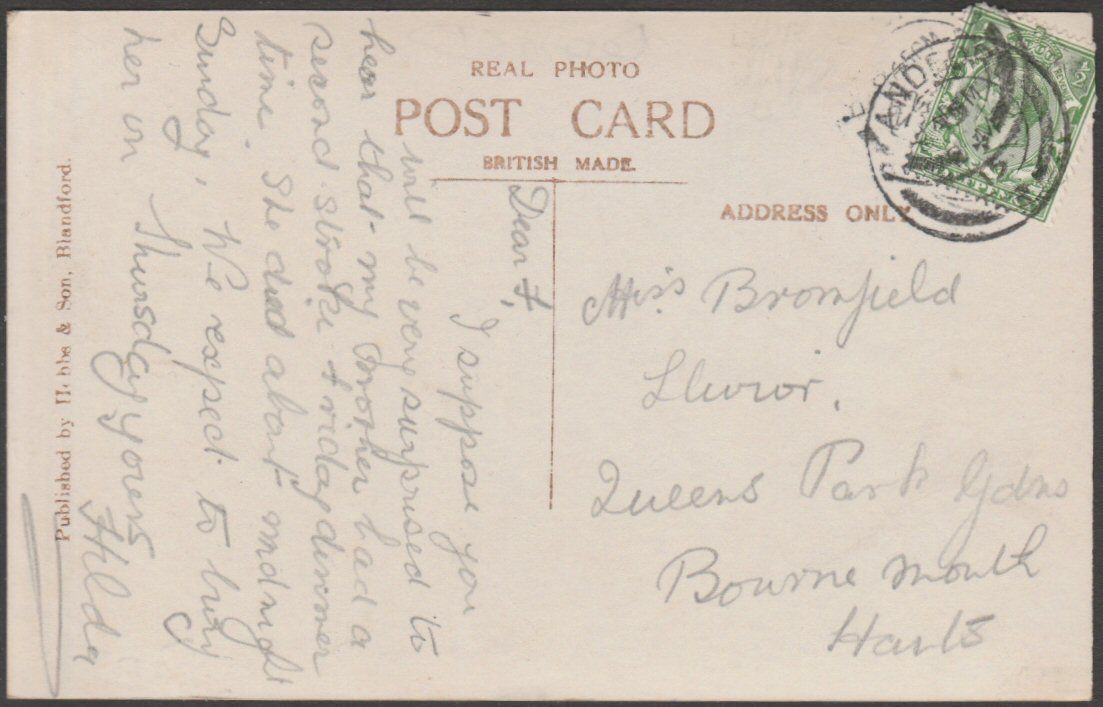 REAL PHOTO
POST CARD
BRITISH MADE.
ADDRESS ONLY
Dear F,
I suppose you
will be very surprised to
hear that my Mother had a
second stroke Friday dinner
time. She died about midnight
Sunday, We expect to bury
her on Thursday yours
Hilda
Miss Bromfield
Queens Park Gdns
Bournemouth
Hants
Published by Hibbs & Son, Blandford.